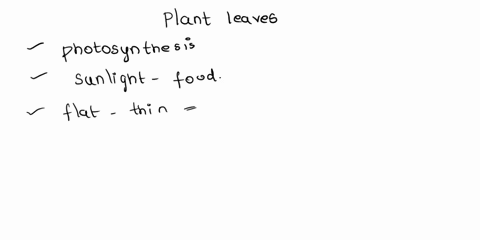 Plant leaves
✓ photosynthesis
✓ sunlight - food.
✓ flat - thin =